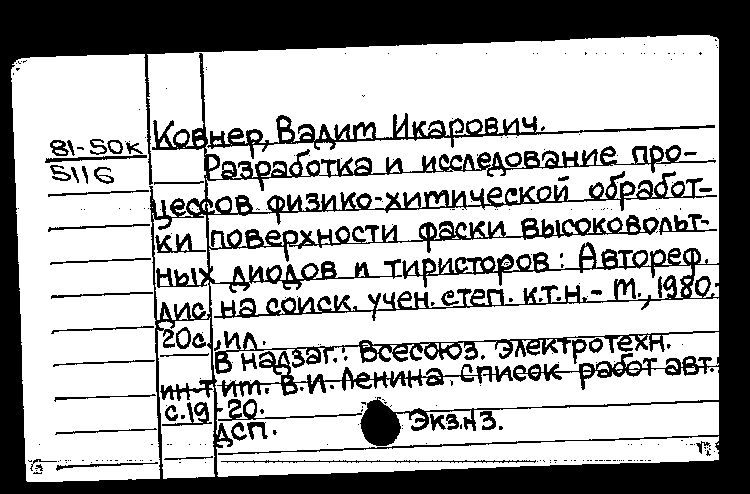 Ковнер, Вадим Икарович.
81-50к
5116
Разработка и исследование про-
цессов физико-химической обработ-
ки поверхности фаски высоковольт-
ных диодов и тиристоров: Автореф.
дис. на соиск. учен. степ. к.т.н. - М., 1980.-
20с., ил.
В надзаг.: Всесоюз. электротехн.
ин-т им. В.И. Ленина. Список работ авт.:
с.19-20.
ДСП.
Экз.н3.